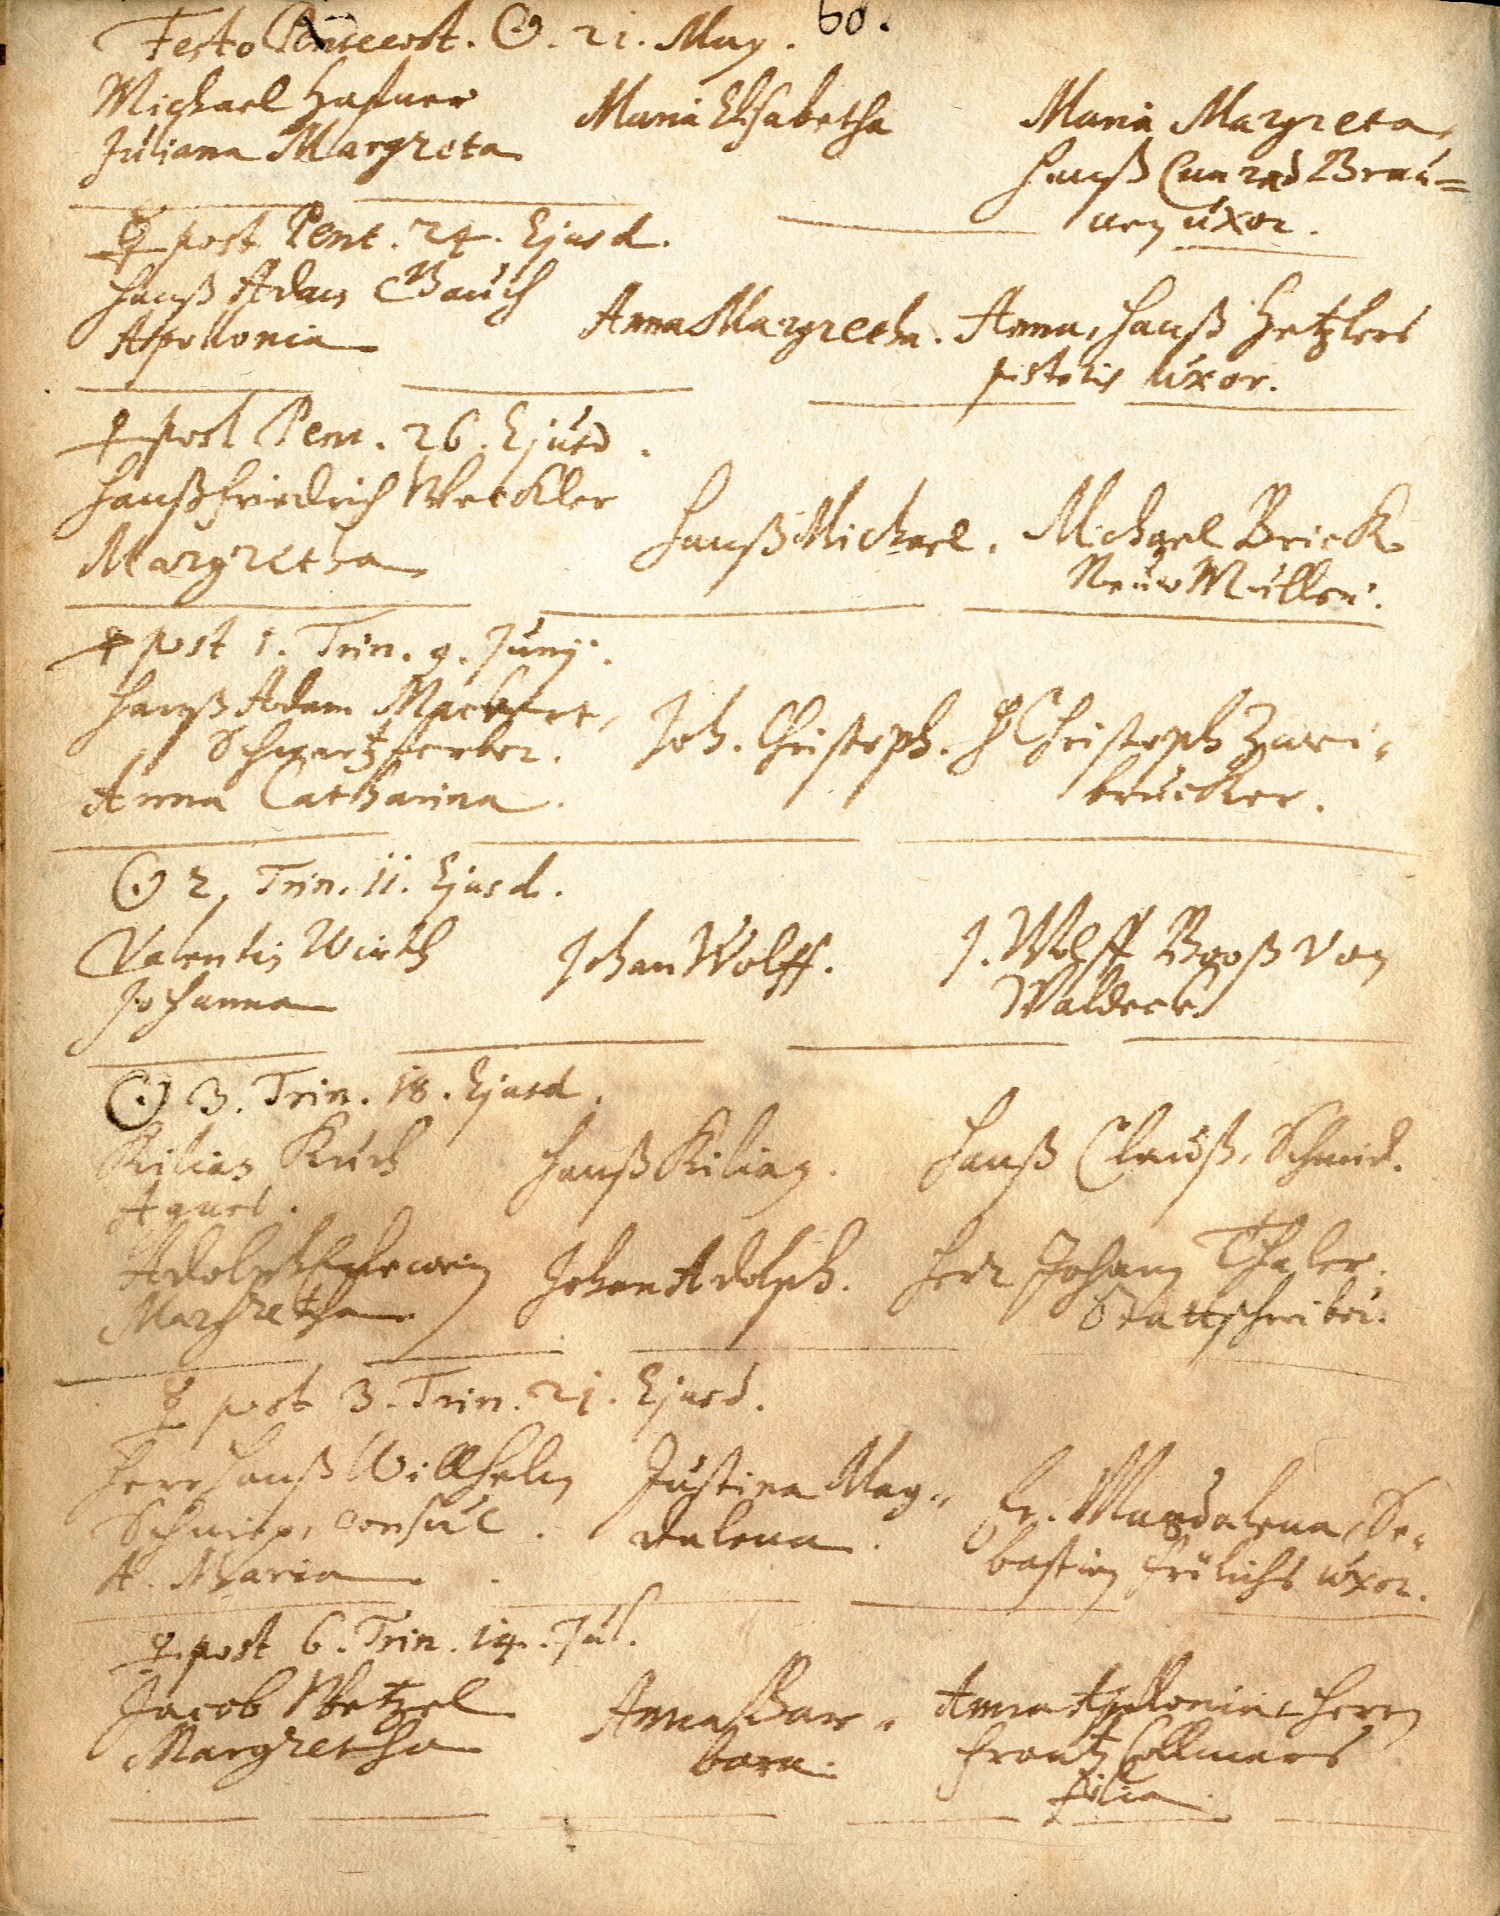 60.
Festo Pentecost. ☉. 21. May.
Michael Hafner
Juliana Margreta
Maria Elisabetha
Maria Margreta,
Hanß Cunrad Brau=
nen uxor.
☿ post Pent. 24. Ejusd.
Hanß Adam Bauch
Appollonia
Anna Margretha.
Anna, Hanß Hetzlers
pistoris uxor.
♀ post Pent. 26. Ejusd.
Hanß Friedrich Weckler
Margretha
Hanß Michael.
Michael Brick
Neuw Müller.
♀ post 1. Trin. 9. Junij.
Hanß Adam Mackert,
Schwartzferber.
Anna Catharina.
Joh. Christoph.
H Christoph Zwei-
brucker.
☉ 2. Trin. 11. Ejusd.
Valentin Wirth
Johanna
Johan Wolff.
J. Wolff Booß von
Waldeck.
☉ 3. Trin. 18. Ejusd.
Kilian Kuch
Agnes.
Hanß Kilian.
Hanß Clauß, Schmid.
Adolph
Margretha
Johan Adolph.
Herr Johann Thaler.
Stattschreiber.
☿ post 3. Trin. 21. Ejusd.
Herr Hanß Willhelm
consul.
A. Maria
Justina Mag-
dalena.
Fr. Magdalena, Se-
bastian Frölichs uxor.
♀ post 6. Trin. 14. Jul.
Jacob Wetzel
Margretha
Anna Bar-
bara.
Anna Apollonia, Herrn
Frantz Collmars
filia.